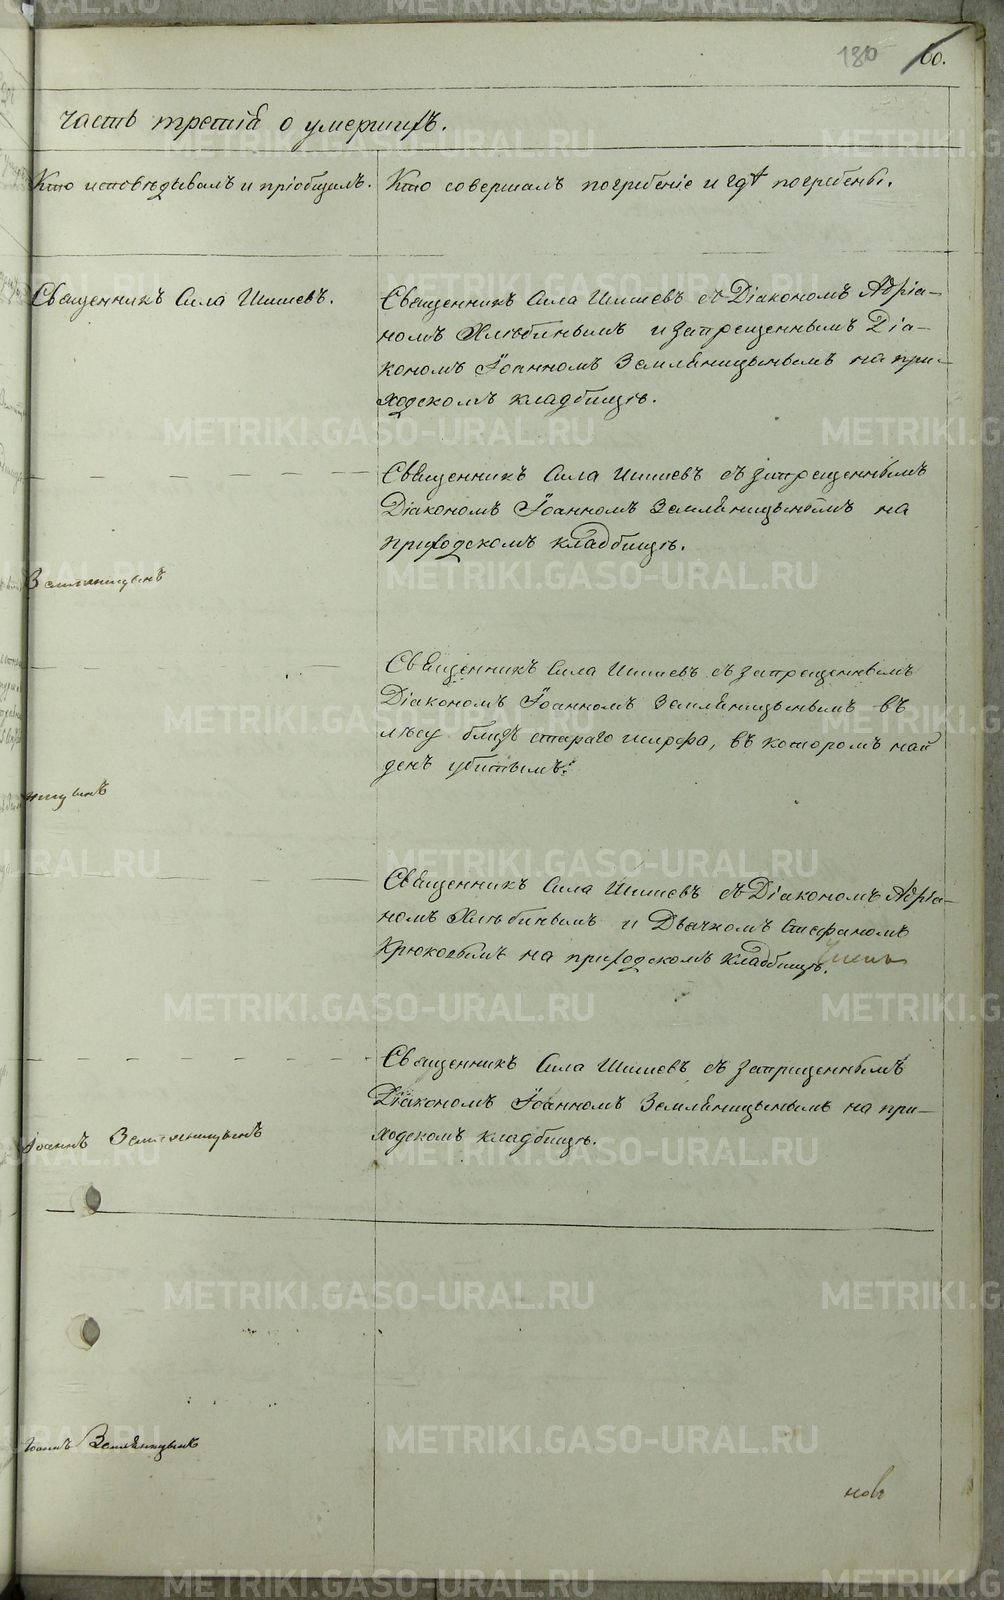 180
60.
часть третія о умершихъ.
Кто исповѣдывалъ и пріобщалъ.
Кто совершалъ погребеніе и гдѣ погребены.
Священникъ Сила Шишевъ.
Священникъ Сила Шишевъ съ Діакономъ Адріа-
номъ Хлѣбинымъ и запрещеннымъ Діа-
кономъ Іоанномъ Земляницынымъ на при-
ходскомъ кладбищѣ.
Священникъ Сила Шишевъ съ запрещеннымъ
Діакономъ Іоанномъ Земляницынымъ на
приходскомъ кладбищѣ.
Земляницынъ
Священникъ Сила Шишевъ съ запрещеннымъ
Діакономъ Іоанномъ Земляницынымъ въ
лѣсу близъ стараго шурфа, въ которомъ най
денъ убитымъ.
ницынъ
Священникъ Сила Шишевъ съ Діакономъ Адріа-
номъ Хлѣбинымъ и Дьячкомъ Стефаномъ
Крюковымъ на приходскомъ кладбищѣ.
Священникъ Сила Шишевъ съ запрещеннымъ
Діакономъ Іоанномъ Земляницынымъ на при-
ходскомъ кладбищѣ.
Іоаннъ Земляницынъ
Іоаннъ Земляницынъ
новъ
METRIKI.GASO-URAL.RU